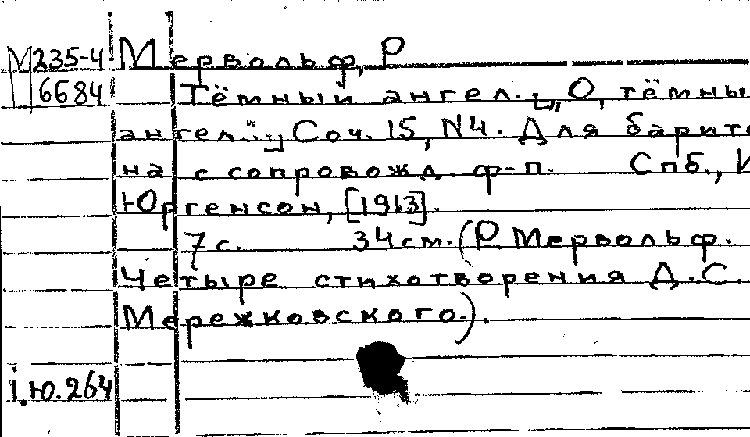 М235-4 Мервольф, Р
6684 Тёмный ангел. [„О, тёмны
ангел..."] Соч. 15, N4. Для барито
на с сопровожд. ф-п. Спб., И
Юргенсон, [1913].
7 с. 34 см. (Р. Мервольф.
Четыре стихотворения Д.С.
Мережковского.).
1.Ю.264